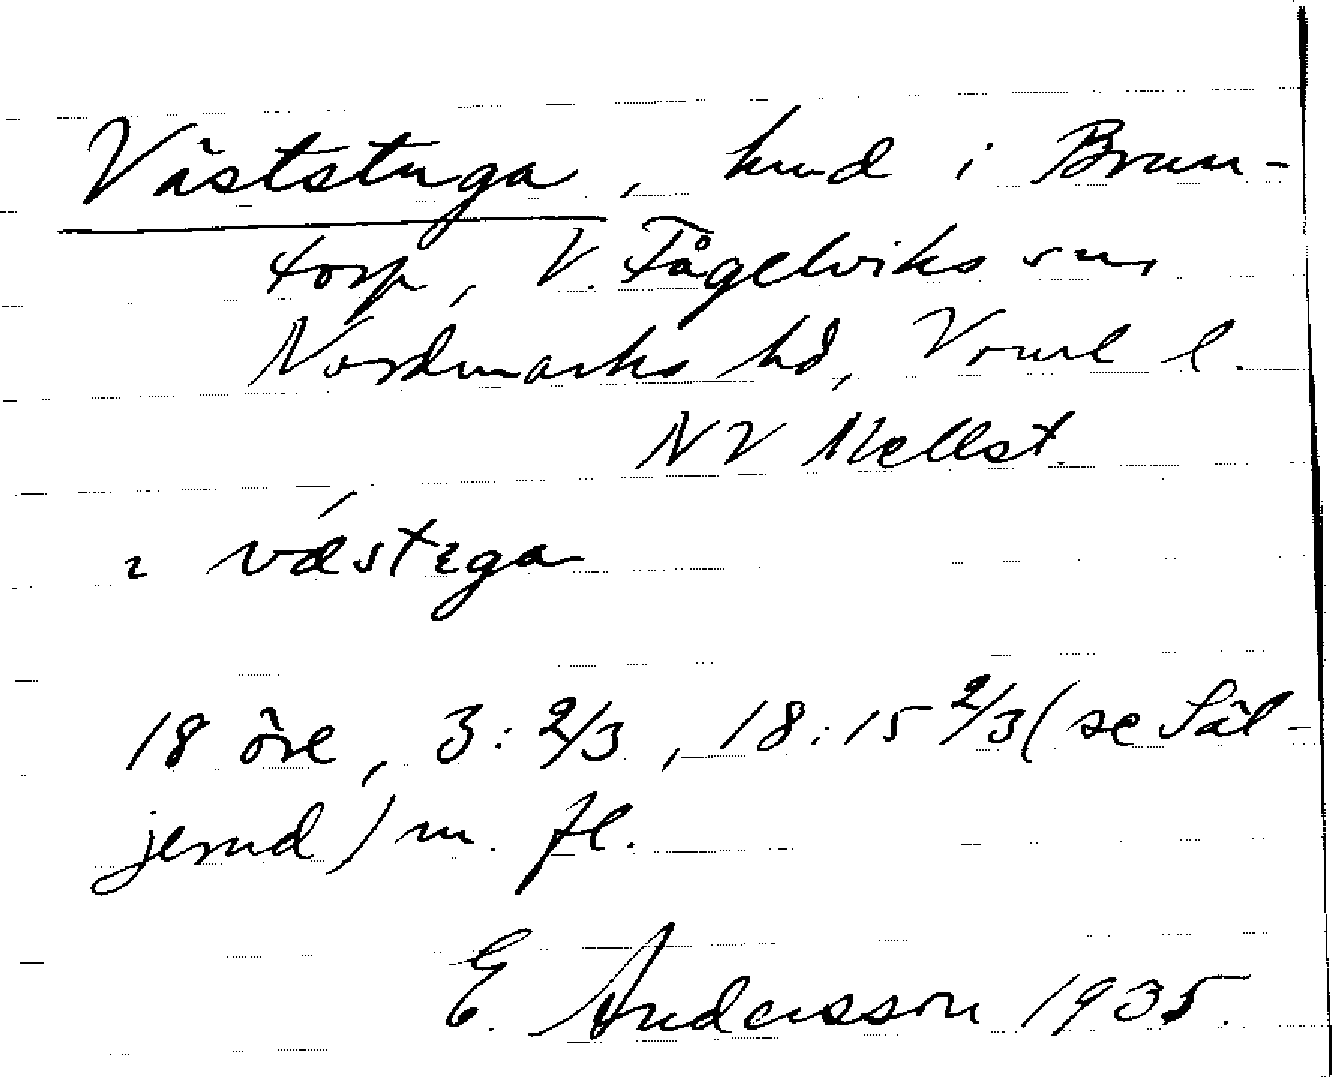 Väststuga, hmd i Brun-
torp, V. Fågelviks sn,
Nordmarks hd, Vrml l.
NV Mellst.
ı væstɛga
18 öre, 3: 2/3, 18:15 2/3 (se Säl-
jerud) m. fl.
E. Andersson 1935.